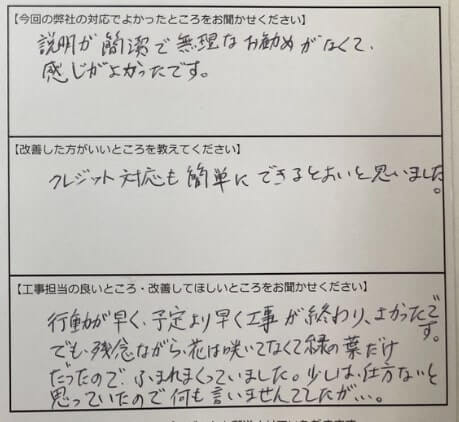 【今回の弊社の対応でよかったところをお聞かせください】
説明が簡潔で無理なお勧めがなくて、
感じがよかったです。
【改善した方がいいところを教えてください】
クレジット対応も簡単にできるとよいと思いました。
【工事担当の良いところ・改善してほしいところをお聞かせください】
行動が早く、予定より早く工事が終わり、よかったです。
でも、残念ながら、花は咲いてなくて緑の葉だけ
だったので、ふまれまくっていました。少しは、仕方ないと
思っていたので何も言いませんでしたが…。